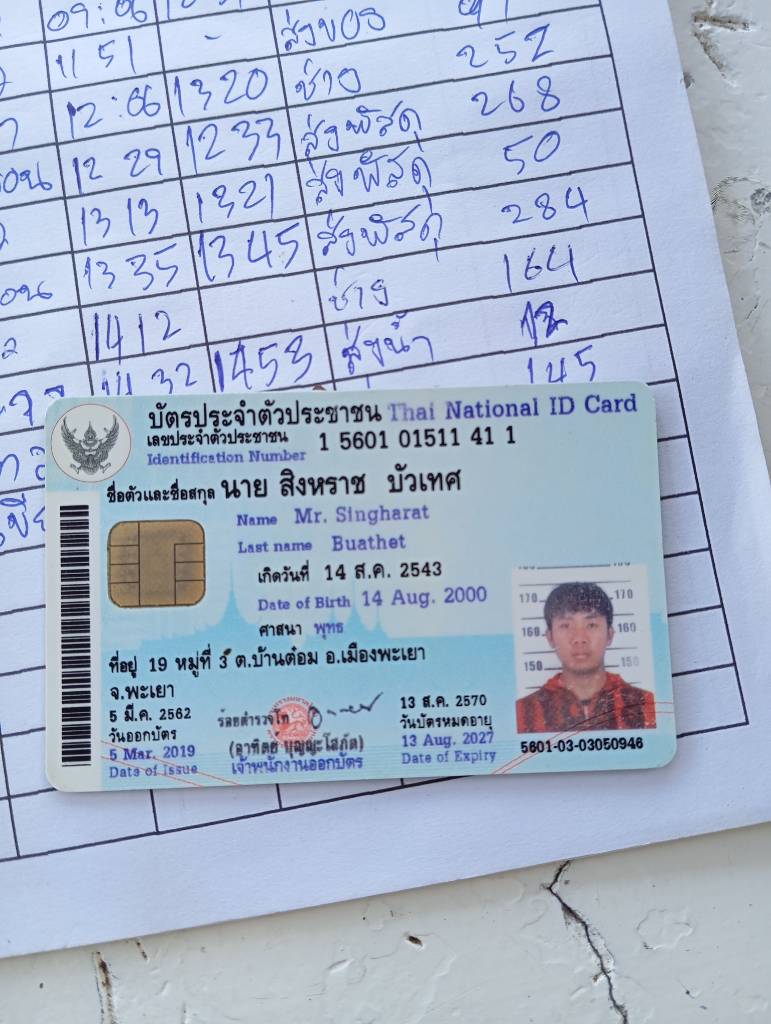 09:06
ส่งของ 91
11 51 - ช่าง 252
12:06 1320 ส่งพัสดุ 268
12 29 1233 ส่งพัสดุ 50
13 13 1321 ส่งพัสดุ 284
13 35 1345 ช่าง 164
1412 ส่งน้ำ
14 32 1453 145
บัตรประจำตัวประชาชน Thai National ID Card
เลขประจำตัวประชาชน 1 5601 01511 41 1
Identification Number
ชื่อตัวและชื่อสกุล นาย สิงหราช บัวเทศ
Name Mr. Singharat
Last name Buathet
เกิดวันที่ 14 ส.ค. 2543
Date of Birth 14 Aug. 2000
ศาสนา พุทธ
ที่อยู่ 19 หมู่ที่ 3 ต.บ้านต๋อม อ.เมืองพะเยา
จ.พะเยา
5 มี.ค. 2562
วันออกบัตร
5 Mar. 2019
Date of Issue
ร้อยตำรวจโท
(อาทิตย์ บุญญะโสภัต)
เจ้าพนักงานออกบัตร
13 ส.ค. 2570
วันบัตรหมดอายุ
13 Aug. 2027
Date of Expiry
170 170
160 160
150 150
5601-03-03050946